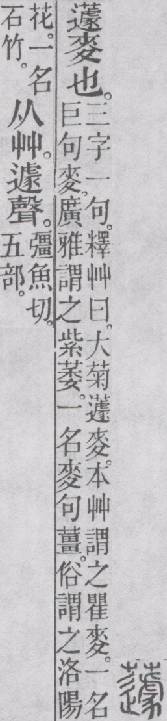 蘧
蘧麥也。
三字一句。釋艸曰。大菊蘧麥。本艸謂之瞿麥。一名
巨句麥。廣雅謂之紫萎。一名麥句薑。俗謂之洛陽
花。一名
石竹。
从艸。遽聲。
彊魚切。
五部。